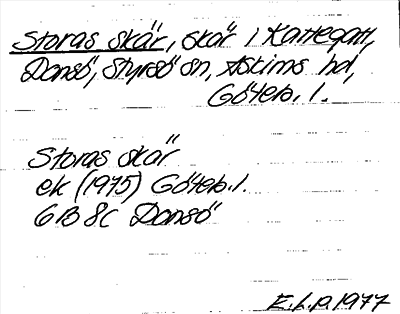 Storas skär, skär i Kattegatt,
Donsö, Styrsö sn, Askims hd,
Göteb. l.
Storas skär
ek (1975) Göteb. l.
6B 8c Donsö
E.L.p. 1977